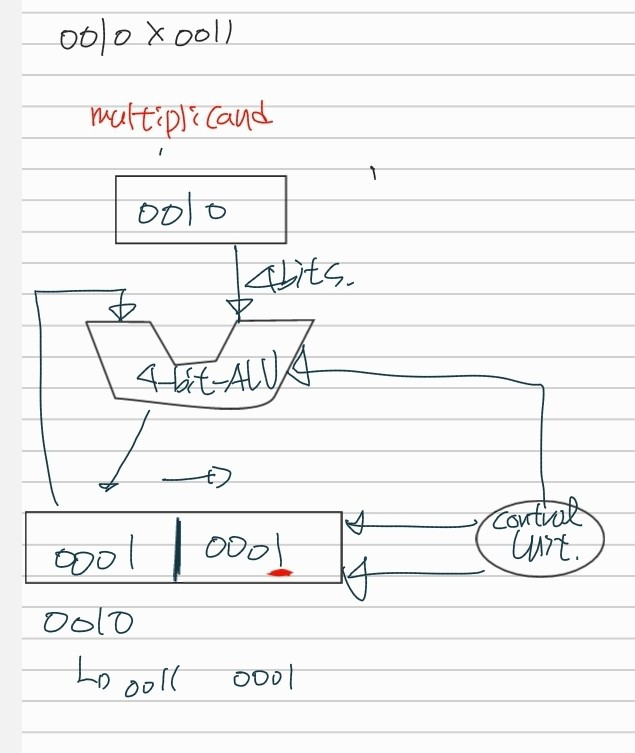 0010 × 0011
multiplicand
0010
4bits.
4-bit-ALU
0001 0001
control
Unit.
0010
0011 0001